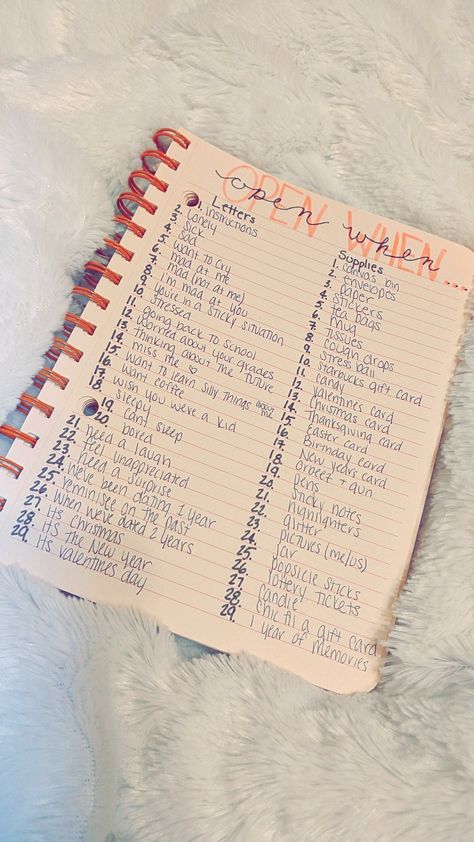 OPEN WHEN...
open when
Letters
1. Instructions
2. Lonely
3. Sick
4. Sad
5. Want to cry
6. mad at me
7. mad (not at me)
8. I'm mad at you
9. you're in a sticky situation
10. Stressed
11. going back to school
12. worried about your grades
13. thinking about the future
14. miss me ♡
15. want to learn silly things about me
16. want coffee
17. wish you were a kid
18. sleepy
19. cant sleep
20. bored
21. need a laugh
22. feel unappreciated
23. need a surprise
24. we've been dating 1 year
25. reminisce on the past
26. when we've dated 2 years
27. Its Christmas
28. Its The New year
29. Its valentines day
Supplies
1. canvas bin
2. envelopes
3. paper
4. stickers
5. tea bags
6. mug
7. tissues
8. cough drops
9. stress ball
10. starbucks gift card
11. candy
12. valentines card
13. Christmas card
14. Thanksgiving card
15. Easter card
16. Birthday card
17. New years card
18. orbeez + gun
19. pens
20. sticky notes
21. highlighters
22. glitter
23. pictures (me/us)
24. jar
25. popsicle sticks
26. lottery tickets
27. candle
28. chic fil a gift card
29. 1 year of memories